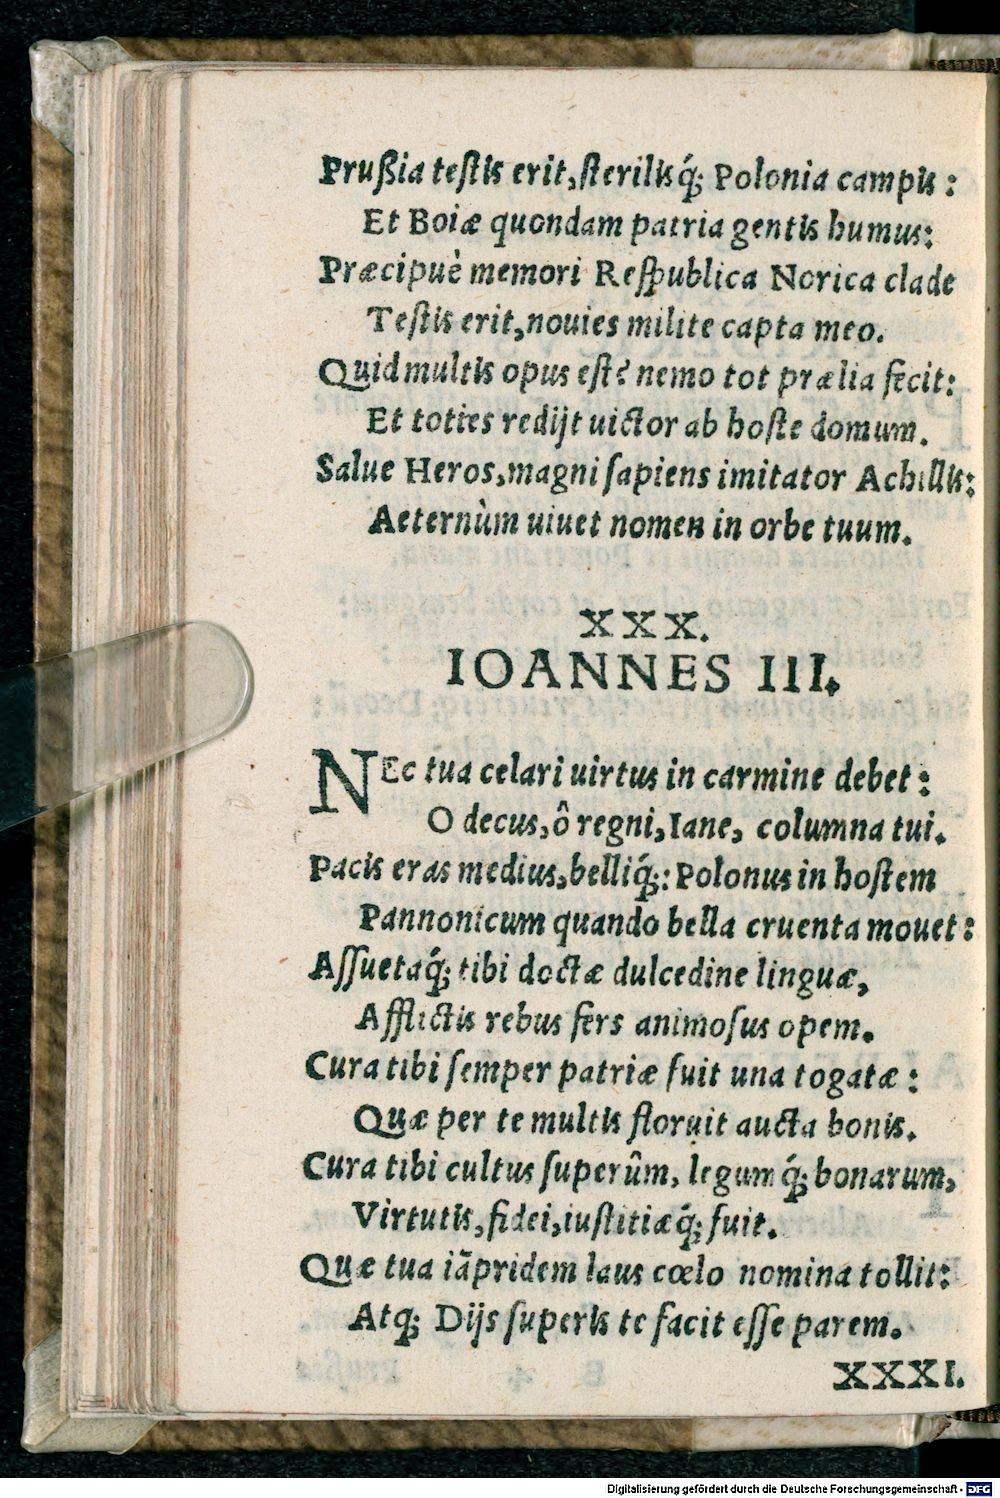 Prußia testis erit, sterilisq́; Polonia campis :
Et Boiæ quondam patria gentis humus:
Præcipuè memori Respublica Norica clade
Testis erit, nouies milite capta meo.
Quid multis opus est? nemo tot prælia fecit:
Et toties redijt uictor ab hoste domum.
Salue Heros, magni sapiens imitator Achillis:
Aeternùm uiuet nomen in orbe tuum.
XXX.
IOANNES III.
NEc tua celari uirtus in carmine debet :
O decus, ô regni, Iane, columna tui.
Pacis eras medius, belliq́;: Polonus in hostem
Pannonicum quando bella cruenta mouet :
Assuetaq́; tibi doctæ dulcedine linguæ,
Afflictis rebus fers animosus opem.
Cura tibi semper patriæ fuit una togatæ :
Quæ per te multis floruit aucta bonis.
Cura tibi cultus superûm, legumq́; bonarum,
Virtutis, fidei, iustitiæq́; fuit.
Quæ tua iãpridem laus cœlo nomina tollit:
Atq; Dijs superis te facit esse parem.
XXXI.
Digitalisierung gefördert durch die Deutsche Forschungsgemeinschaft - DFG